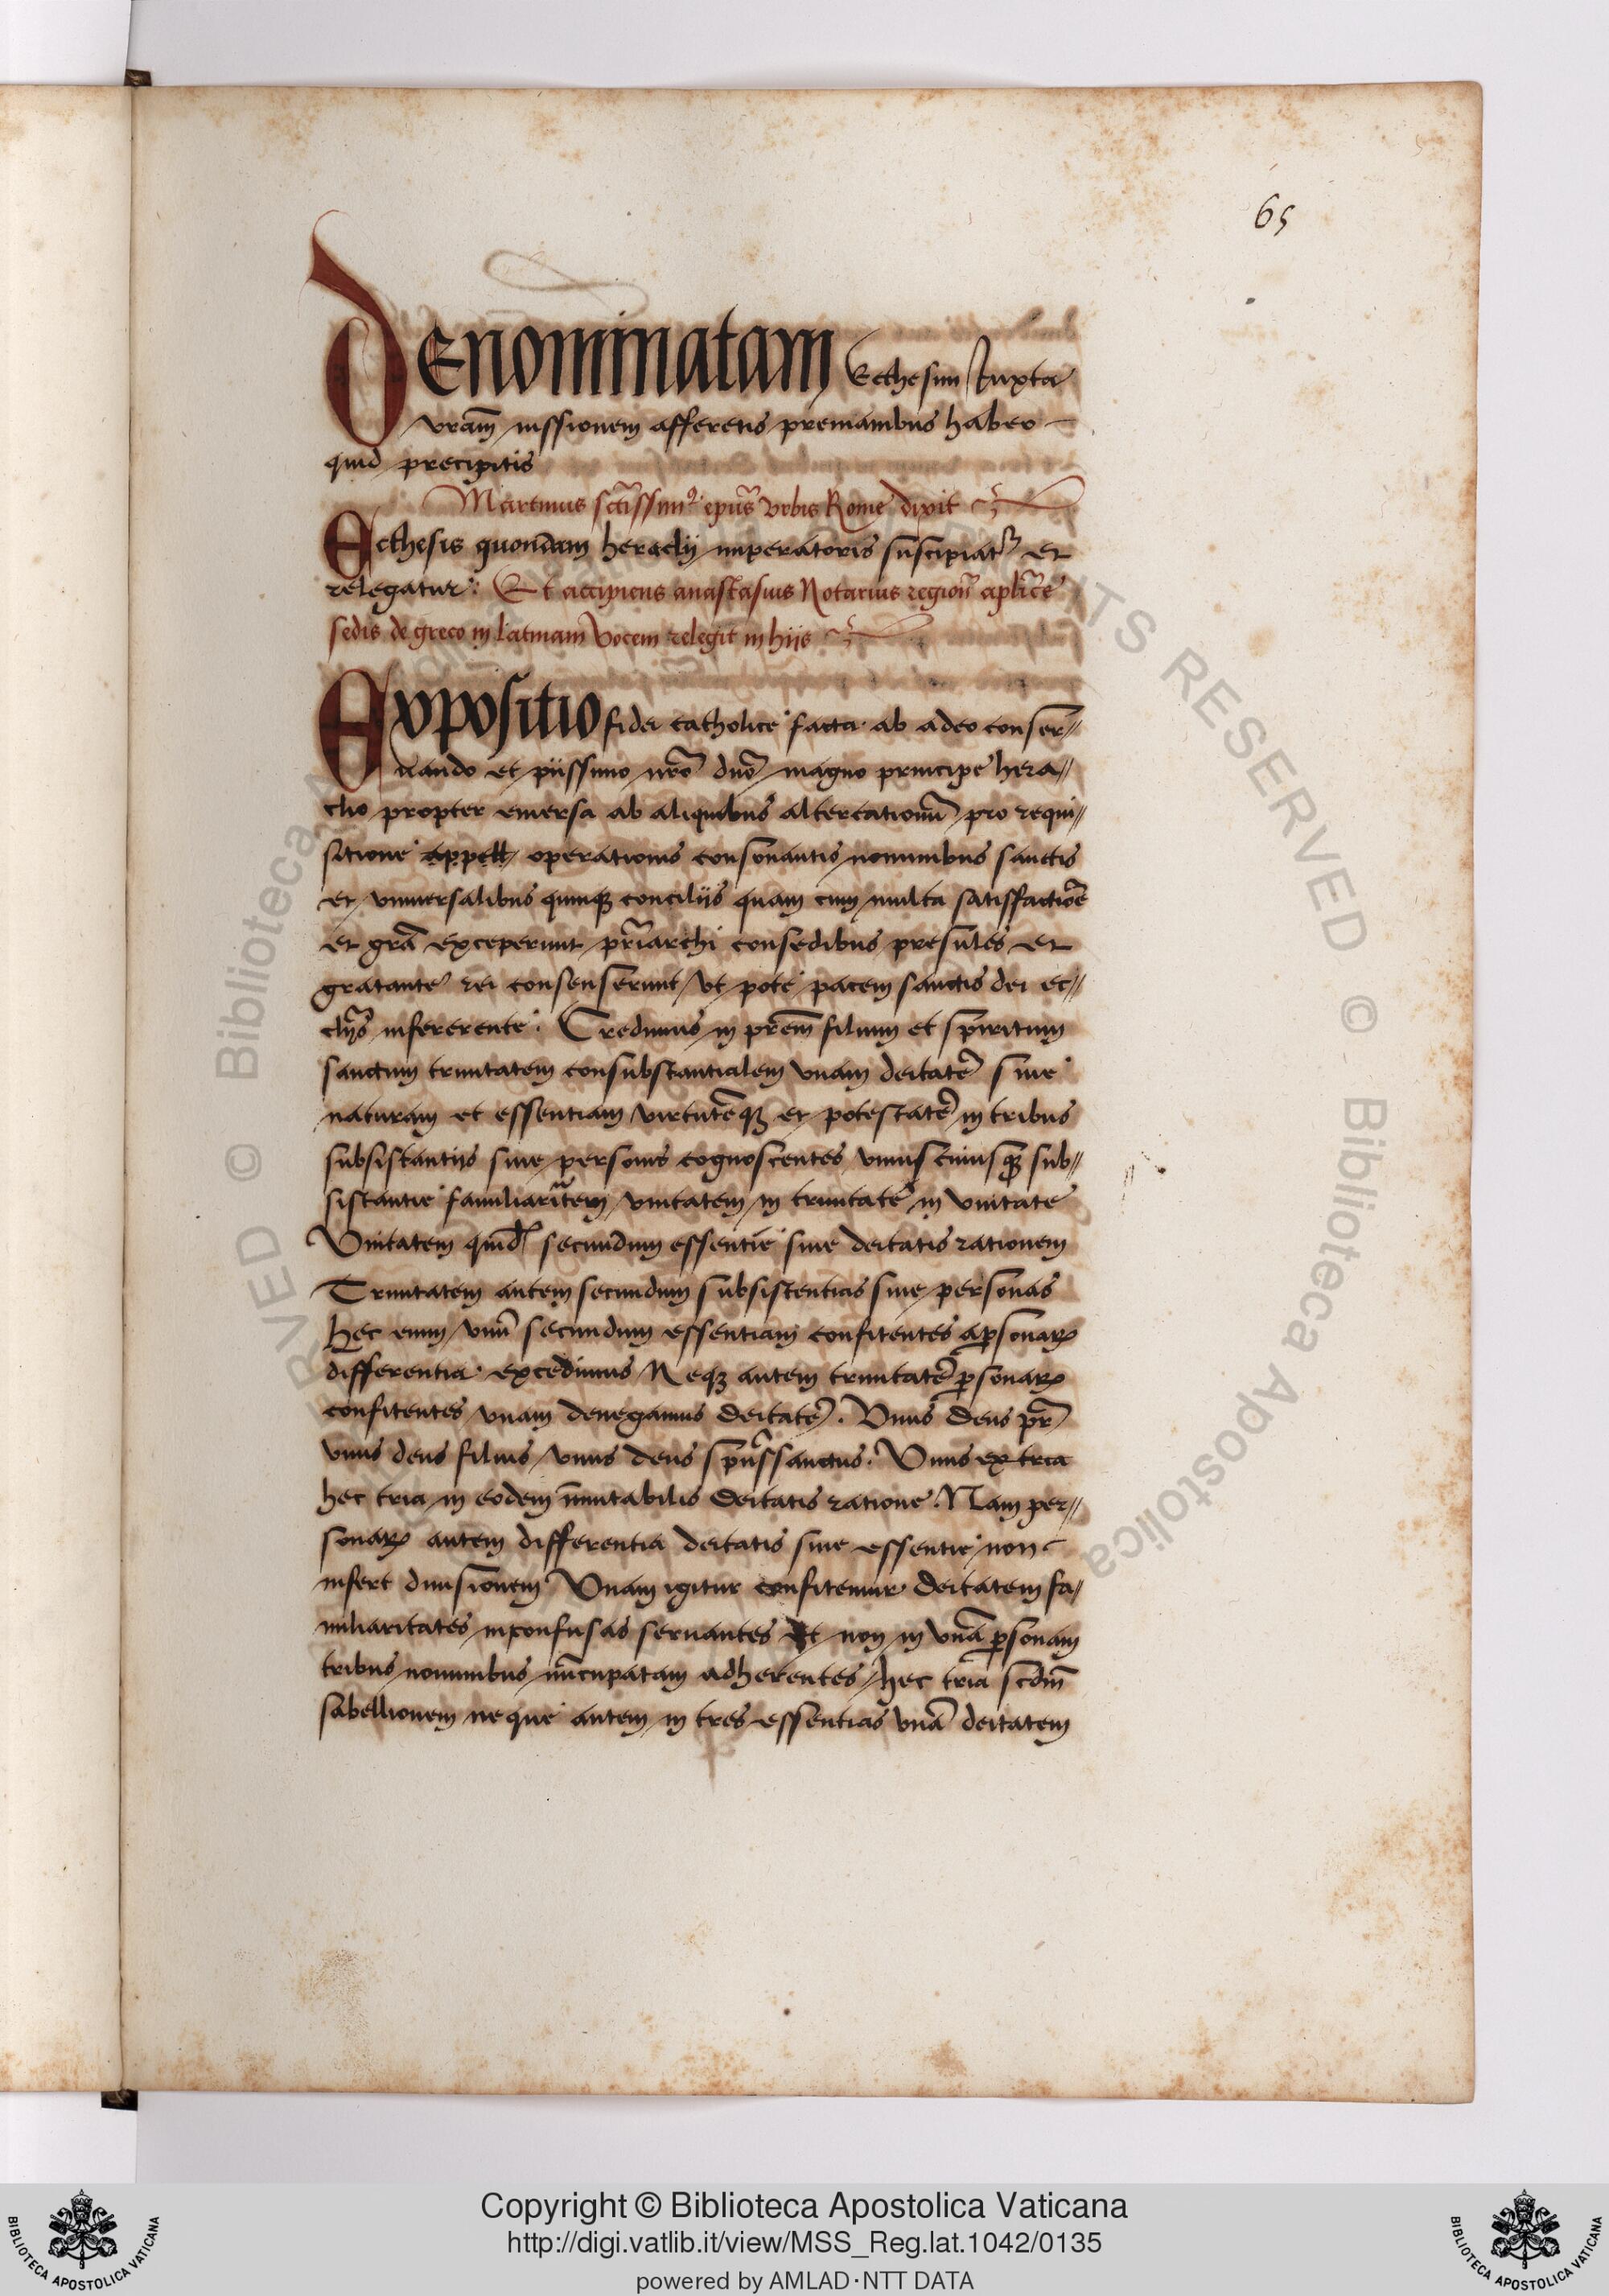 65
Denominatam Ecthesim Juxta
vrām iussionem afferens premanibus habeo
quid precipitis
Martinus sctissim9 epūs vrbis Rome dixit
Ecthesis quondam heraclij imperatoris suscipiatr et
relegatur: Et accipiens anastasius Notarius region aplice
sedis de greco in latinam Vocem relegit in hijs
Expositio fidei catholice facta ab adeo conser//
uando et piissimo nrō dnō magno principe hera//
clio propter emersa ab aliquibus altercationū pro requi//
sitione operationis consonantis nominibus sanctis
et vniuersalibus quinqz concilijs quam cum multa satisffactiōe
et grā exceperunt priarchi consedibus presules et
gratante rei consenserunt Vt pote pacem sanctis dei ec//
clijs infererente: Credimus in prem filium et spiritum
sanctum trinitatem consubstantialem vnam deitatē siue
naturam et essentiam virtutēqz et potestatē in tribus
subsistantijs siue personis cognoscentes vniuscuiusqz sub//
sistantie familiaritem vnitatem in trinitate in vnitate
Vnitatem quid secundum essentie siue deitatis rationem
Trinitatem autem secundum subsistentias siue personas
hec enim vnū secundum essentiam confitentes apsonarꝝ
differentia excedimus Neqz autem trinitatē psonarꝝ
confitentes vnam denegamus deitatē. Vnus deus pr
vnus deus filius vnus deus spūs sanctus. Vnus extra
hec tria in eodem īmutabilis deitatis ratione. Nam per//
sonarꝝ autem differentia deitatis siue essentie non
infert diuisionem Vnam igitur confitemur deitatem fa/
miliaritates inconfusas seruantes Et non in vnā psonam
tribus nominibus nūcupatam adherentes hec tria scdm
sabellionem neque autem in tres essentias vnā deitatem
RVED © Biblioteca Apostolica
RIGHTS RESERVED © Biblioteca Apostolica
Copyright © Biblioteca Apostolica Vaticana
http://digi.vatlib.it/view/MSS_Reg.lat.1042/0135
powered by AMLAD·NTT DATA
BIBLIOTECA APOSTOLICA VATICANA
BIBLIOTECA APOSTOLICA VATICANA